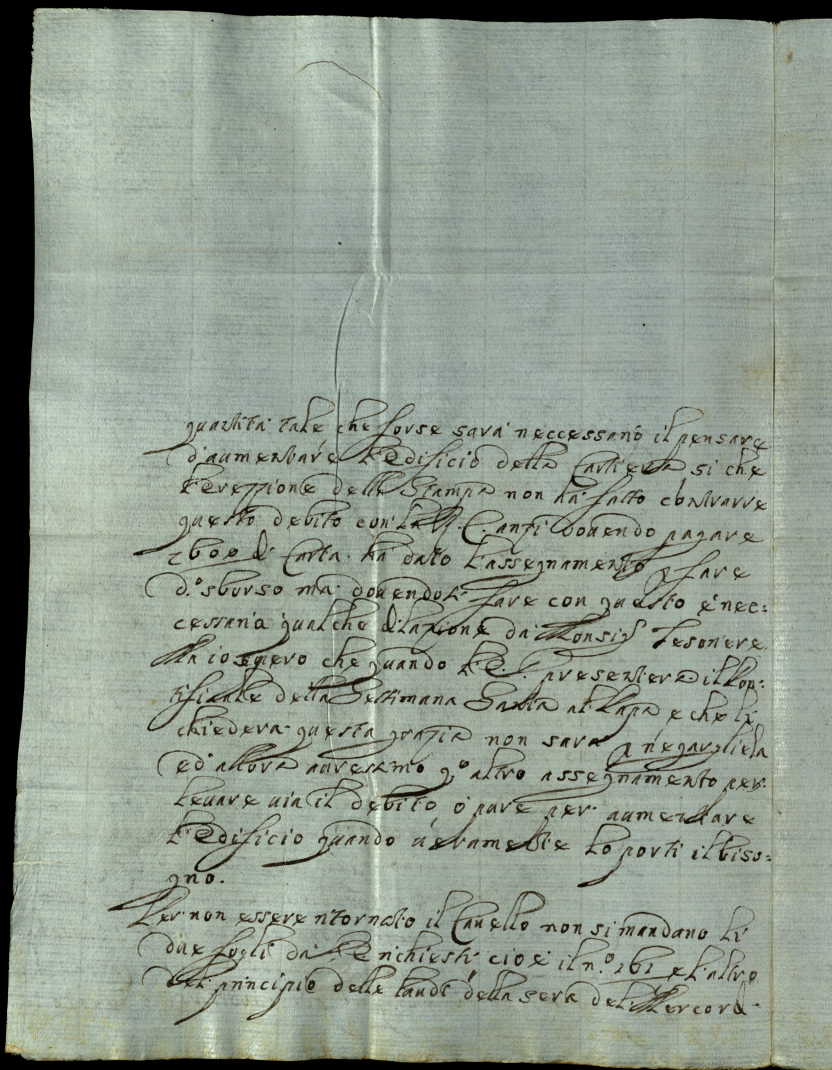 quantità tale che forse sarà neccessario il pensare
d'aumentare l'Edificio della Cartiera si che
l'Erezzione della Stampa non hà fatto contrarre
questo debito con la R. C. anzi dovendo pagare
di Carta hà dato l'assegnamento p fare
d.º sborso mà dovendoli fare con questo è nec:
cessaria qualche dilazione da Monsig.r Tesoriere
Ma io spero che quando V. E. presenterà il Pon:
tificale della Settimana Santa al Papa e che li
chiederà questa grazia non sarà p negargliela
ed allora avressimo q.º altro assegnamento per
levare via il debito ò pure per aumentare
l'Edificio quando veramente lo porti il biso:
gno.
Per non essere ritornato il Cavello non si mandano li
due fogli da richiesti cioè il n.º 161 e l'altro
del principio delle laudi della sera del Mercord